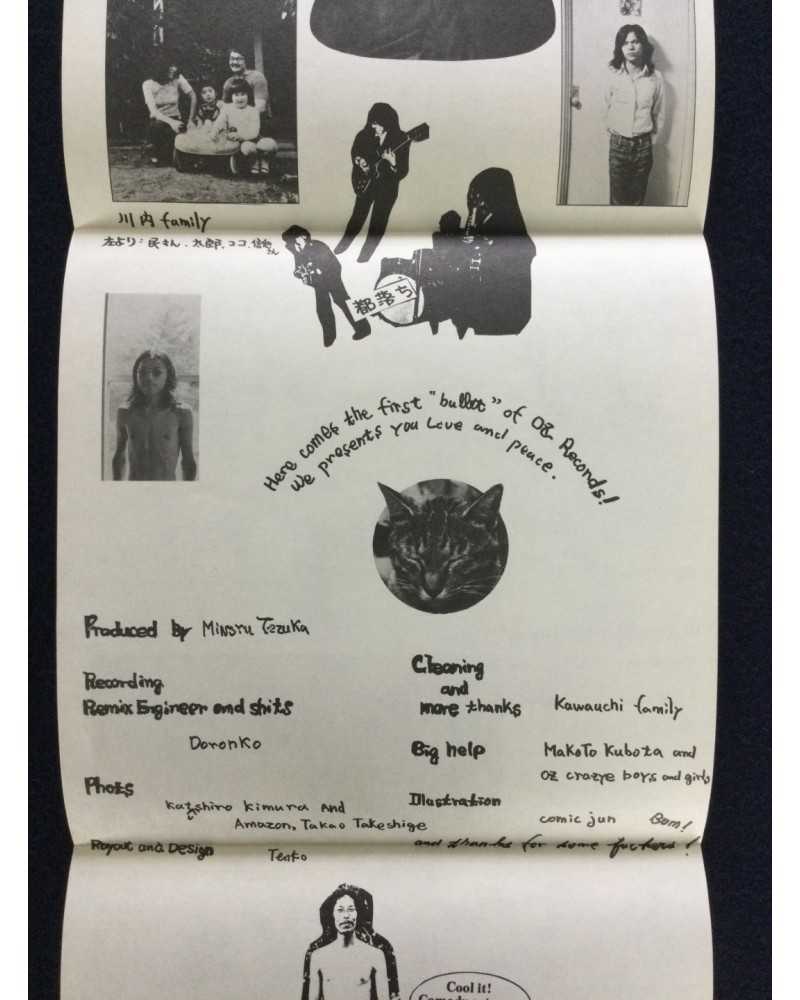 川内 family
左より:民さん、太郎、ココ、
さん
都落ち
Here comes the first "bullet" of Oz Records!
We presents you Love and peace.
Produced by Minoru Tezuka
Recording
Remix Engineer and shits
Doronko
Phots
Katshiro Kimura and
Amazon, Takao Takeshige
Rayout and Design
Tenko
Cleaning
and
more thanks
Kawauchi family
Big help
Makoto Kubota and
Oz crazye boys and girls
Illastration
comic jun
Bom!
and thanks for some fuckers!
Cool it!